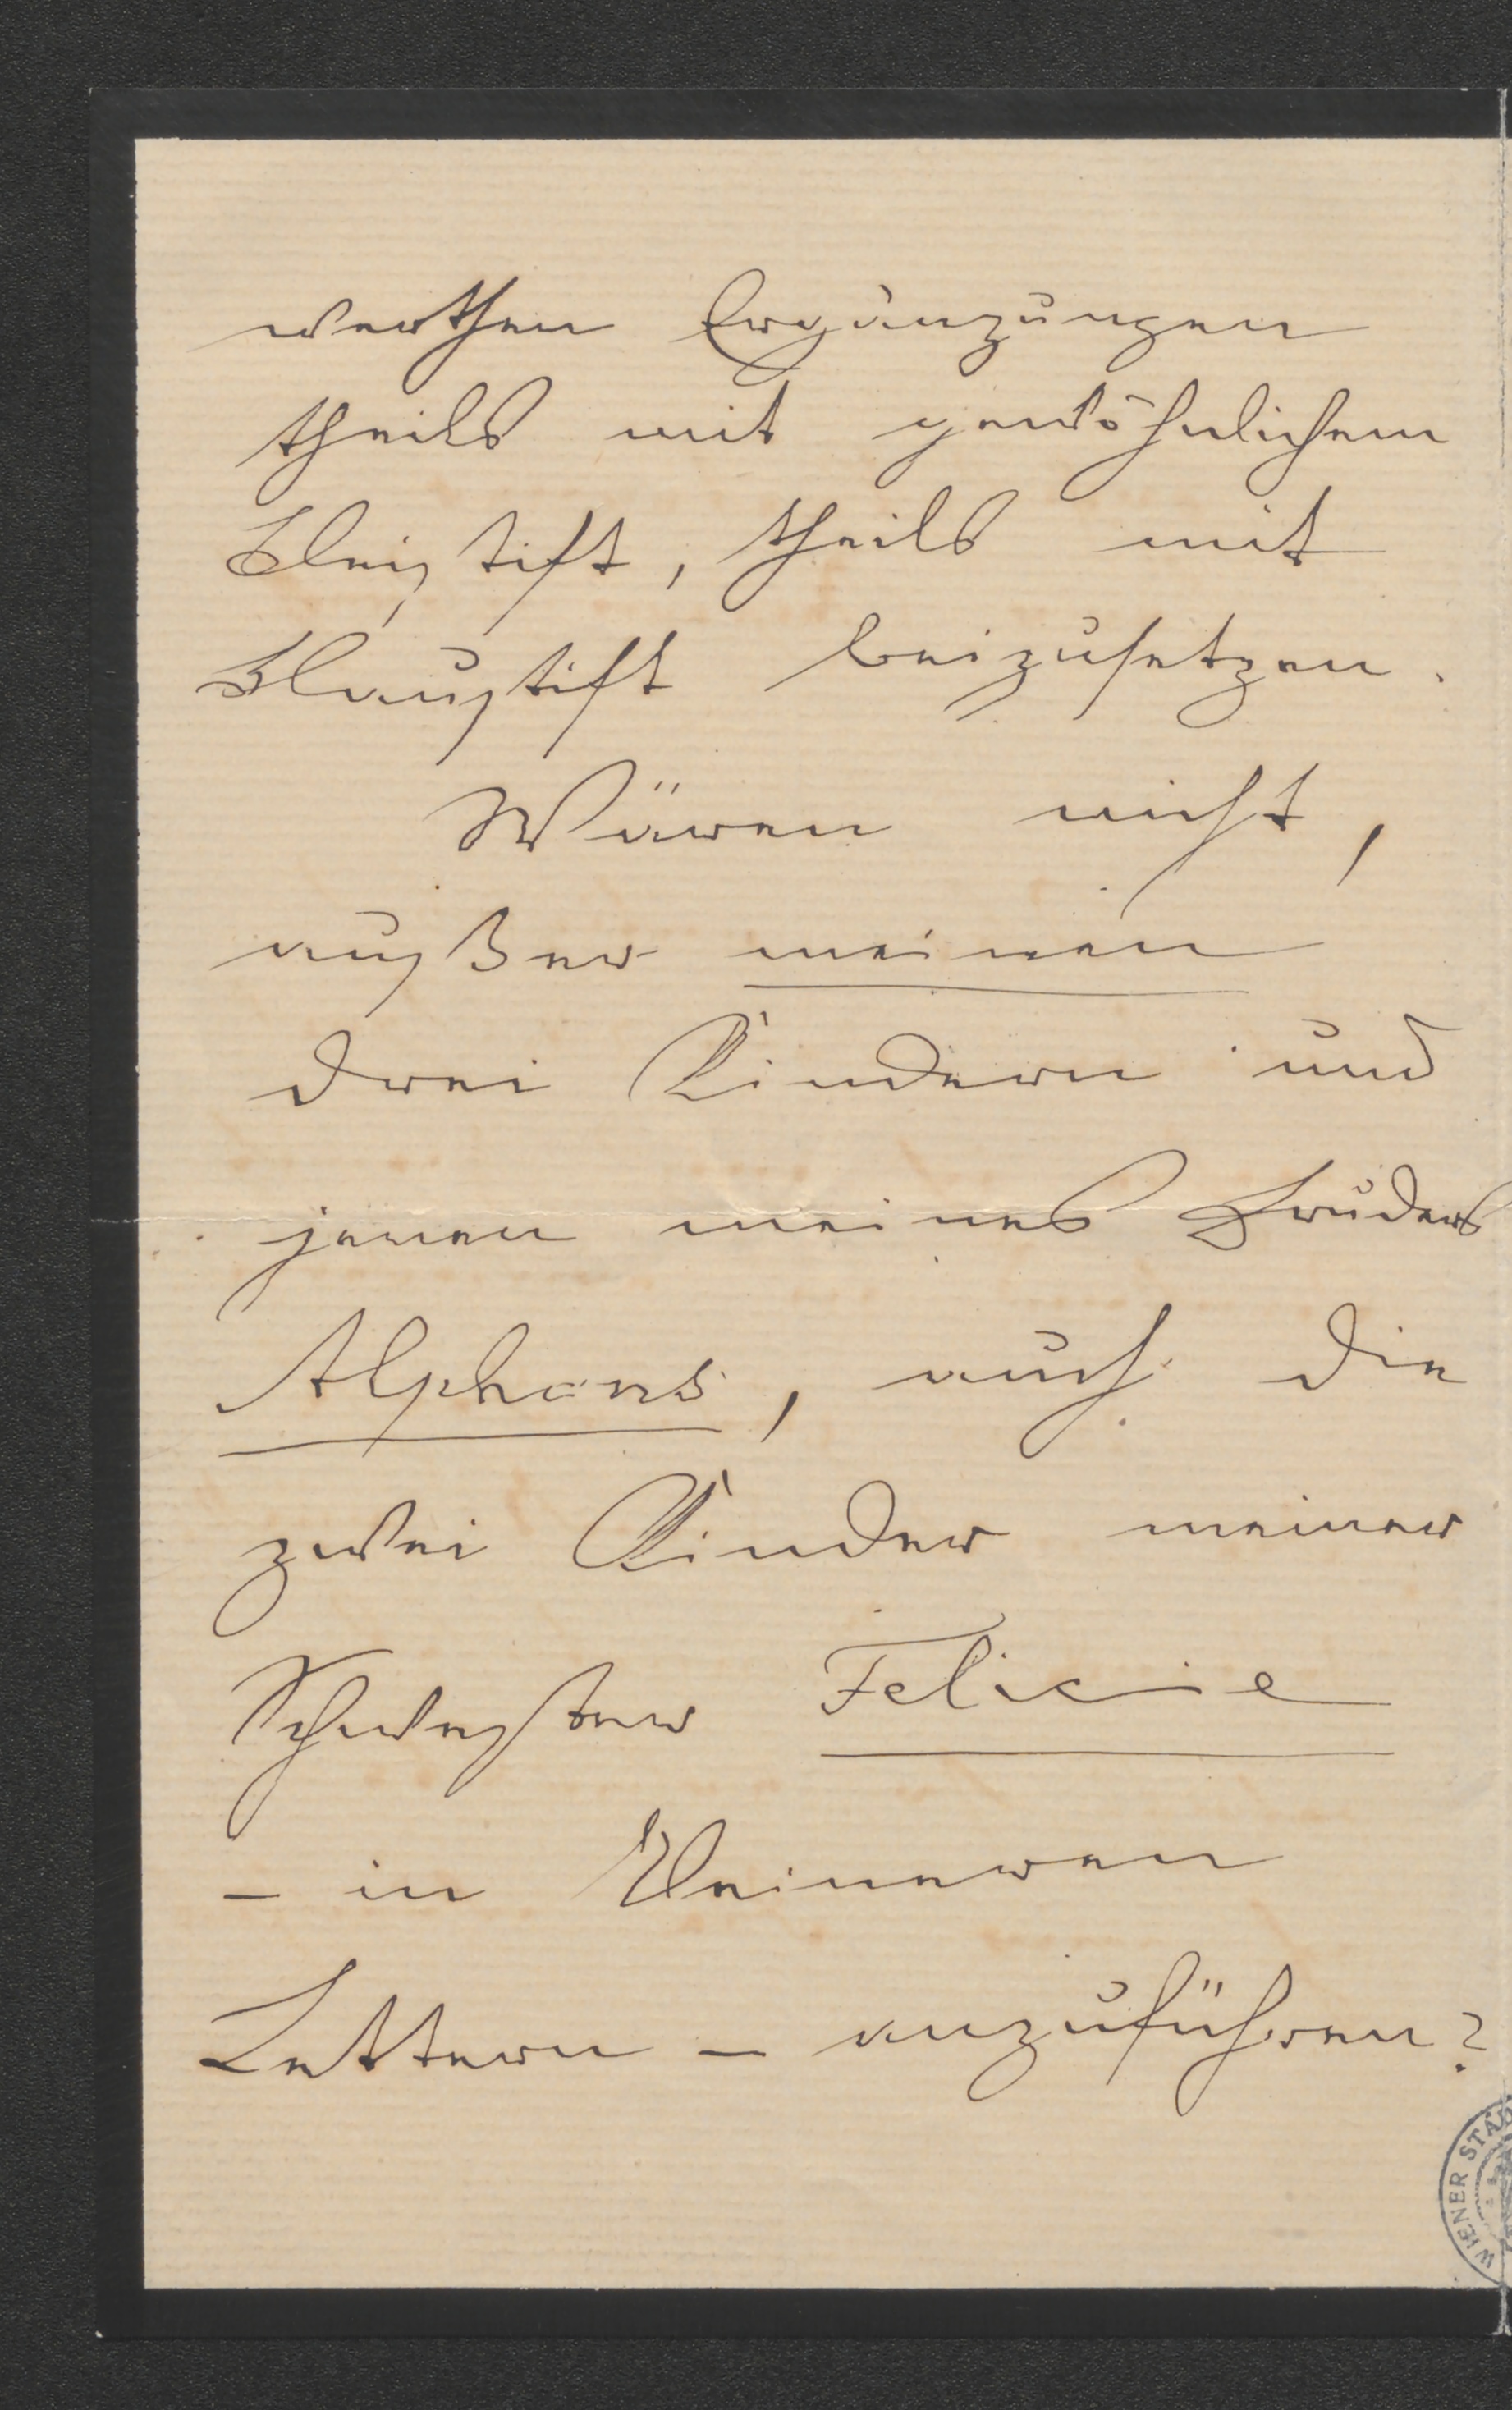 werthen Ergänzungen
theils mit gewöhnlichem
Bleistift, theils mit
Blaustift beizusetzen.
Wären nicht,
außer meinen
drei Kindern und
jenen meines Bruders
Alphons, auch die
zwei Kinder meiner
Schwester Felicie
– in kleineren
Lettern – anzuführen?
WIENER STÄD